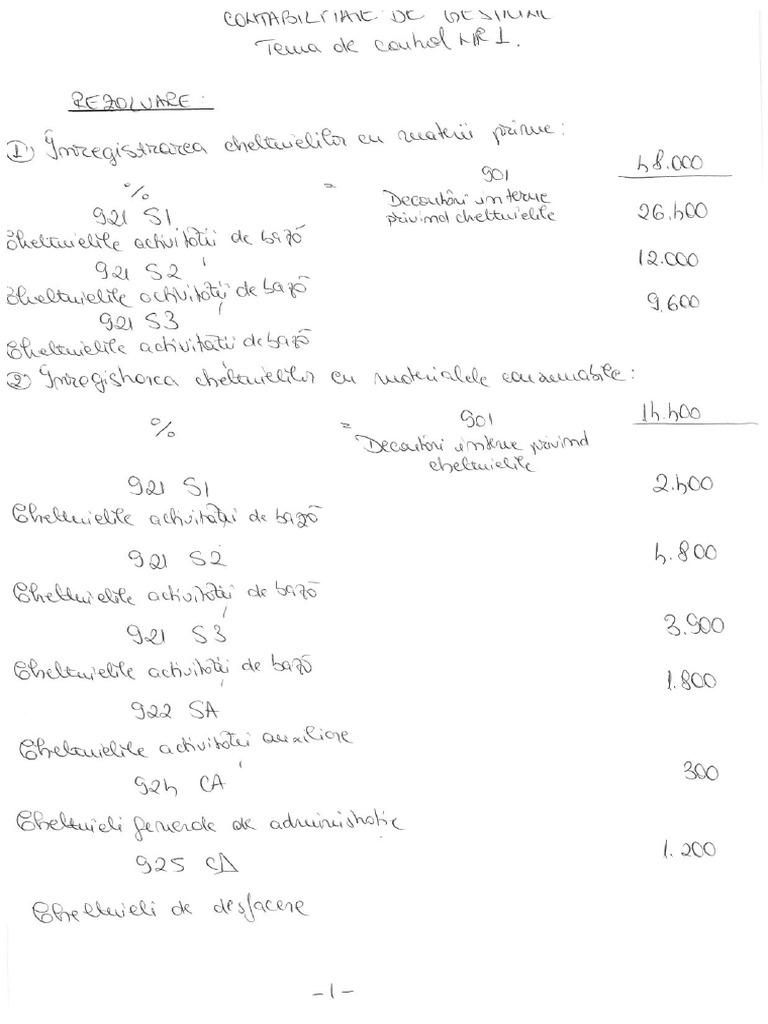 CONTABILITATE DE GESTIUNE
Tema de control NR 1.
REZOLVARE:
1) Înregistrarea cheltuielilor cu materii prime:
% = 901 48.000
921 S1 Decontări interne privind cheltuielile 26.400
Cheltuielile activității de bază
921 S2 12.000
Cheltuielile activității de bază
921 S3 9.600
Cheltuielile activității de bază
2) Înregistrarea cheltuielilor cu materialele consumabile:
% = 901 14.400
Decontări interne privind cheltuielile
921 S1 2.400
Cheltuielile activității de bază
921 S2 4.800
Cheltuielile activității de bază
921 S3 3.900
Cheltuielile activității de bază
1.800
922 SA
Cheltuielile activității auxiliare
924 CA 300
Cheltuieli generale de administrație
925 CD 1.200
Cheltuieli de desfacere
-1-